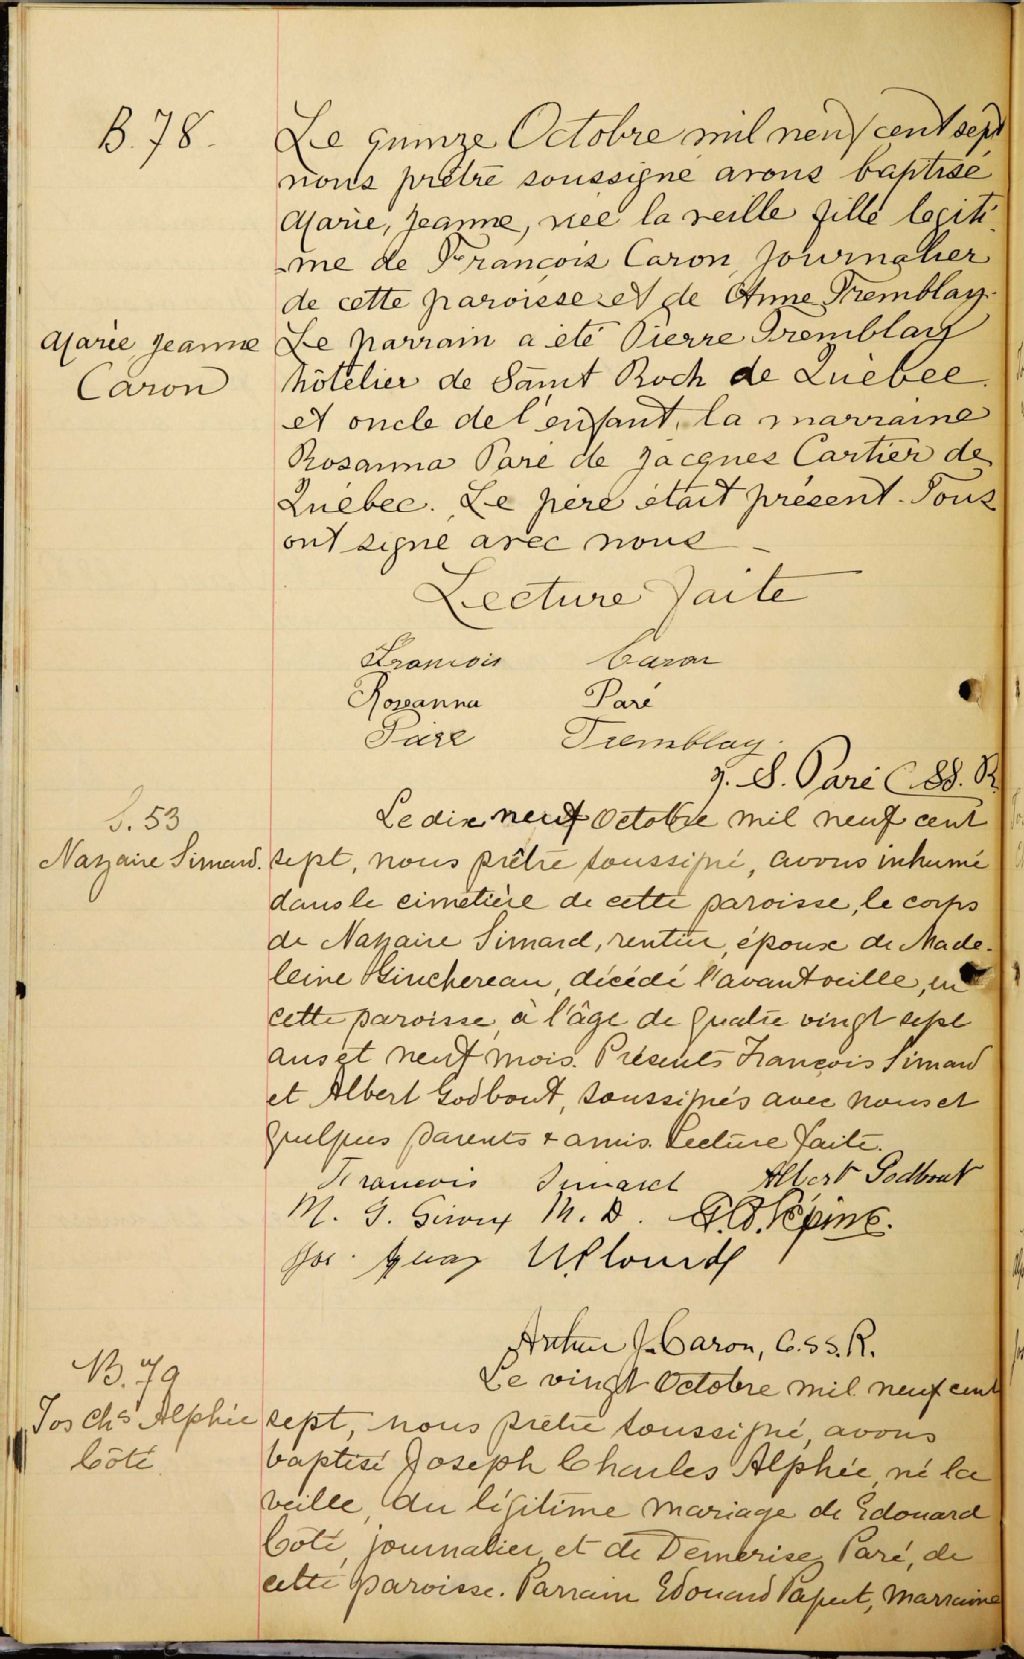 B. 78.
Le quinze Octobre mil neuf cent sept
nous prêtre soussigné avons baptisé
Marie, Jeanne, née la veille fille legiti-
-me de François Caron, journalier
de cette paroisse et de Anne Tremblay.
Marie Jeanne
Caron
Le parrain a été Pierre Tremblay
hôtelier de Saint Roch de Québec
et oncle de l'enfant, la marraine
Rosanna Paré de Jacques Cartier de
Québec. Le père était présent. Tous
ont signé avec nous -
Lecture faite
Francois Caron
Roseanna Paré
Piere Tremblay.
J. S. Paré C.SS.R.
S. 53
Nazaire Simard.
Le dix neuf Octobre mil neuf cent
sept, nous prêtre soussigné, avons inhumé
dans le cimetière de cette paroisse, le corps
de Nazaire Simard, rentier, époux de Made-
leine Guichereau, décédé l'avant veille, en
cette paroisse, à l'âge de quatre vingt sept
ans et neuf mois. Présents François Simard
et Albert Godbout, soussignés avec nous et
quelques parents & amis. Lecture faite.
Francois Simard Albert Godbout
M. G. Giroux M. D. Lépine.
Jos.
Arthur J. Caron, C.SS.R.
B. 79
Jos Chs Alphée
Côté
Le vingt Octobre mil neuf cent
sept, nous prêtre soussigné, avons
baptisé Joseph Charles Alphée, né la
veille, du légitime mariage de Edouard
Côté, journalier, et de Démerise Paré, de
cette paroisse. Parrain Edouard Paput, Marraine